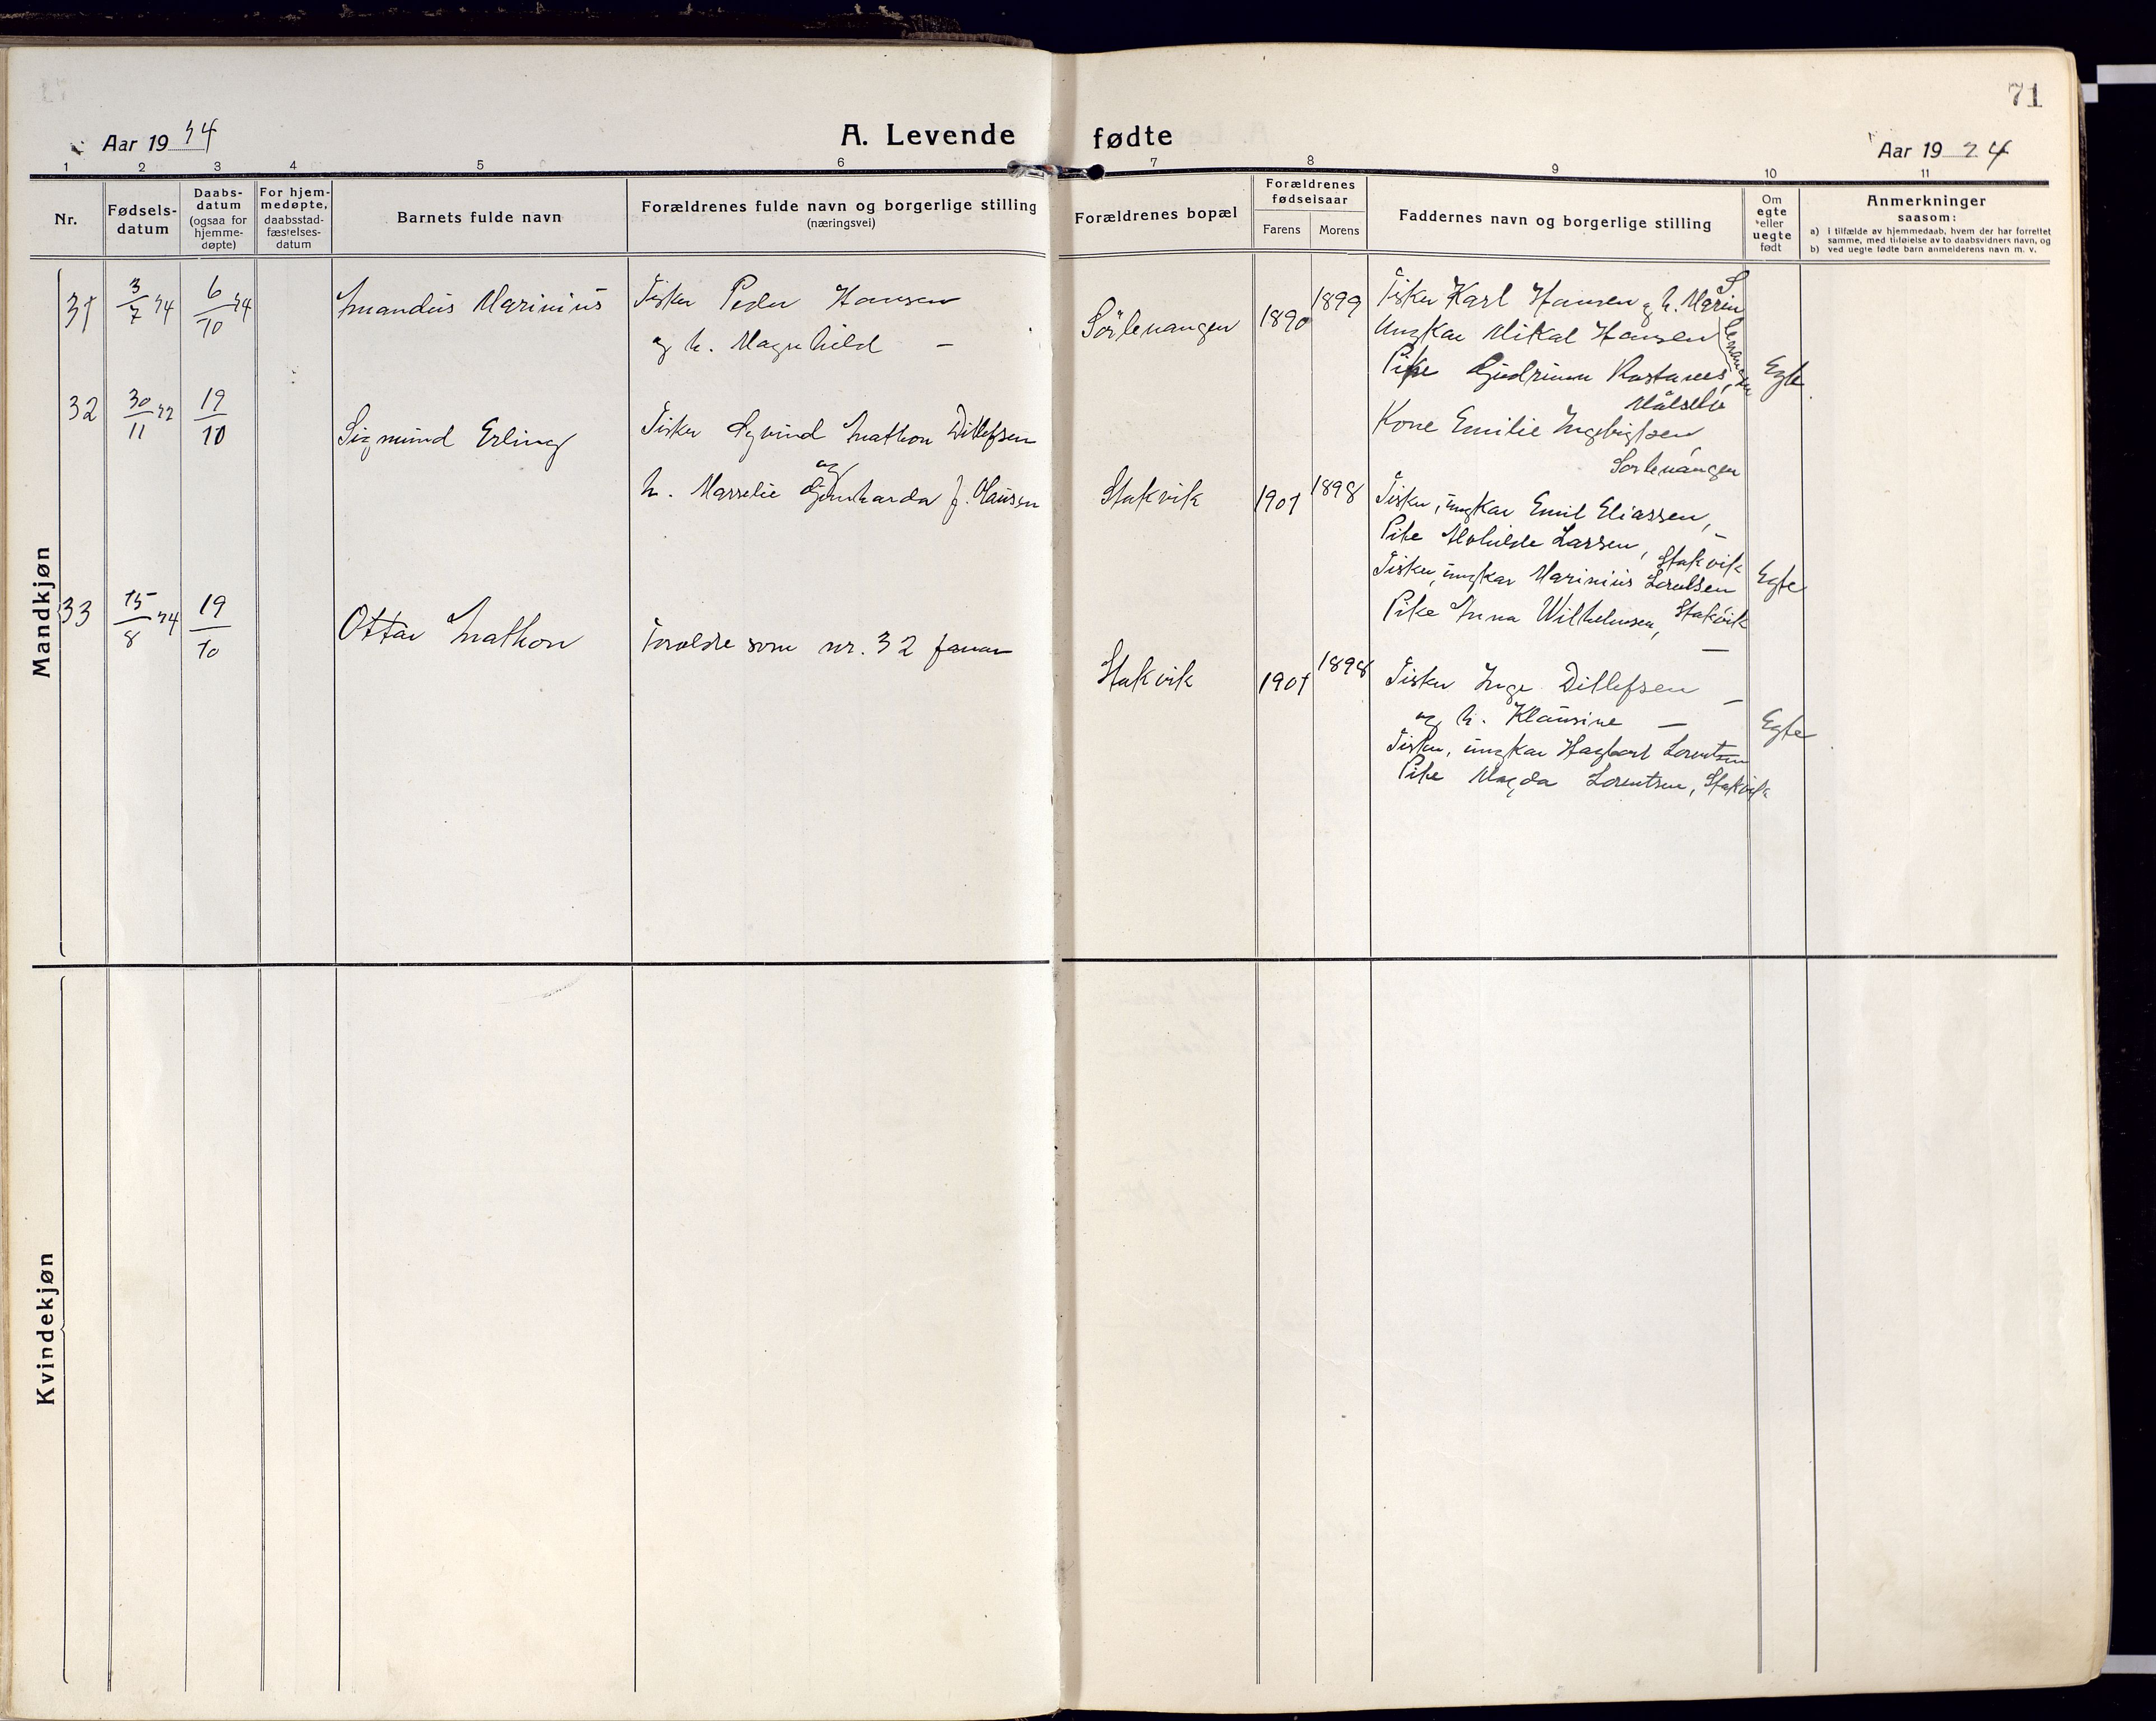 71
Aar 1924
A. Levende fødte
Aar 1924
1 2 3 4 5 6 7 8 9 10 11
Nr.
Fødsels-
datum
Daabs-
datum
(ogsaa for
hjemme-
døpte)
For hjem-
medøpte,
daabsstad-
fæstelses-
datum
Barnets fulde navn
Forældrenes fulde navn og borgerlige stilling
(næringsvei)
Forældrenes bopæl
Forældrenes
fødselsaar
Farens Morens
Faddernes navn og borgerlige stilling
Om
egte
eller
uegte
født
Anmerkninger
saasom:
a) i tilfælde av hjemmedaab, hvem der har forrettet
samme, med tilføielse av to daabsvidners navn, og
b) ved uegte fødte barn anmelderens navn m. v.
Mandkjøn
31 3/7 24 6/10 24 Marinius Fisker Peder Hansen
og h. Magnhild —
Sörlenangen 1890 1899
Fisker Karl Hansen og h. Marin
Ungkar Mikal Hansen
Pike Gudrunn
Målselv
Kone Emilie Ingebrigtsen
Sörlenangen
Egte
32 30/11 22 19/10 Sigmund Erling Fisker Ditlefsen
og
h. f. Hansen
Stakvik 1901 1898
Fisker, ungkar Emil Eliassen, —
Pike Larsen, Stakvik
Fisker, ungkar Marinius
Pike Wilhelmsen, Stakvik
Egte
33 15/8 24 19/10 Ottar Foreldre som nr. 32
Stakvik 1901 1898
Fisker Inge Ditlefsen —
og h. Klausine —
Fisker, ungkar Hagbart Lorentsen
Pike Magda Lorentsen, Stakvik
Egte
Kvindekjøn